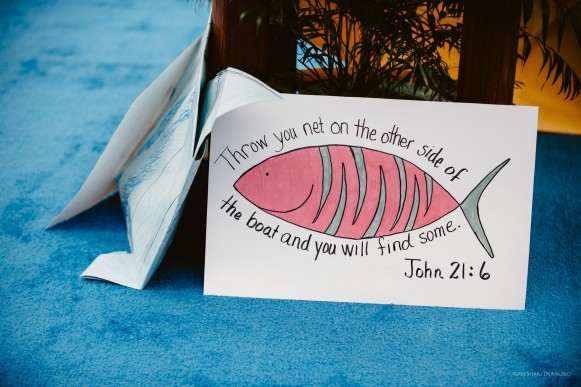 Throw you net on the other side of
the boat and you will find some.
John 21:6